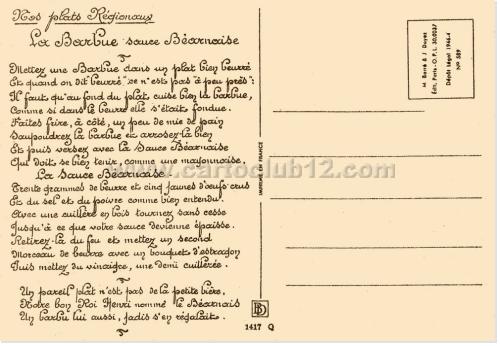 Nos plats Régionaux
La Barbue sauce Béarnaise
Mettez une Barbue dans un plat bien beurré
Et quand on dit beurré "ce n'est pas à peu près":
Il faut qu'au fond du plat, cuise bien la barbue,
Comme si dans le beurre elle s'était fondue.
Faites frire, à côté, un peu de mie de pain
Saupoudrez la barbue et arrosez-la bien
Et puis versez avec la Sauce Béarnaise
Qui doit se bien tenir, comme une mayonnaise.
La Sauce Béarnaise
Trente grammes de beurre et cinq jaunes d'œufs crus
Et du sel et du poivre comme bien entendu.
Avec une cuillère en bois tournez sans cesse
Jusqu'à ce que votre sauce devienne épaisse.
Retirez-la du feu et mettez un second
Morceau de beurre avec un bouquet d'estragon
Puis mettez du vinaigre, une demi cuillerée.
Un pareil plat n'est pas de la petite bière,
Notre bon Roi Henri nommé le Béarnais
Un barbu lui aussi, jadis s'en régalait.
M. Barré & J. Dayez
Edit. Paris - O.P.L. 30.0037
Dépôt légal 1946-4
No 589
IMPRIMÉ EN FRANCE
www.cartoclub12.com
BD
1417 Q